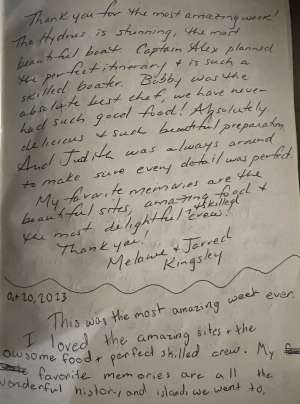 Thank you for the most amazing week!
The Hydrus is stunning, the most
beautiful boat. Captain Alex planned
the perfect itinerary & is such a
skilled boater. Bobby was the
absolute best chef, we have never
had such good food! Absolutely
delicious & such beautiful preparation
And Judith was always around
to make sure every detail was perfect.
My favorite memories are the
beautiful sites, amazing food &
the most delightful & skilled crew!
Thank you!
Melanie & Jarred
Kingsley
Oct 20, 2023
This was the most amazing week ever.
I loved the amazing sites & the
awsome food & perfect skilled crew. My
favorite memories are all the
wonderful history and islands we went to.